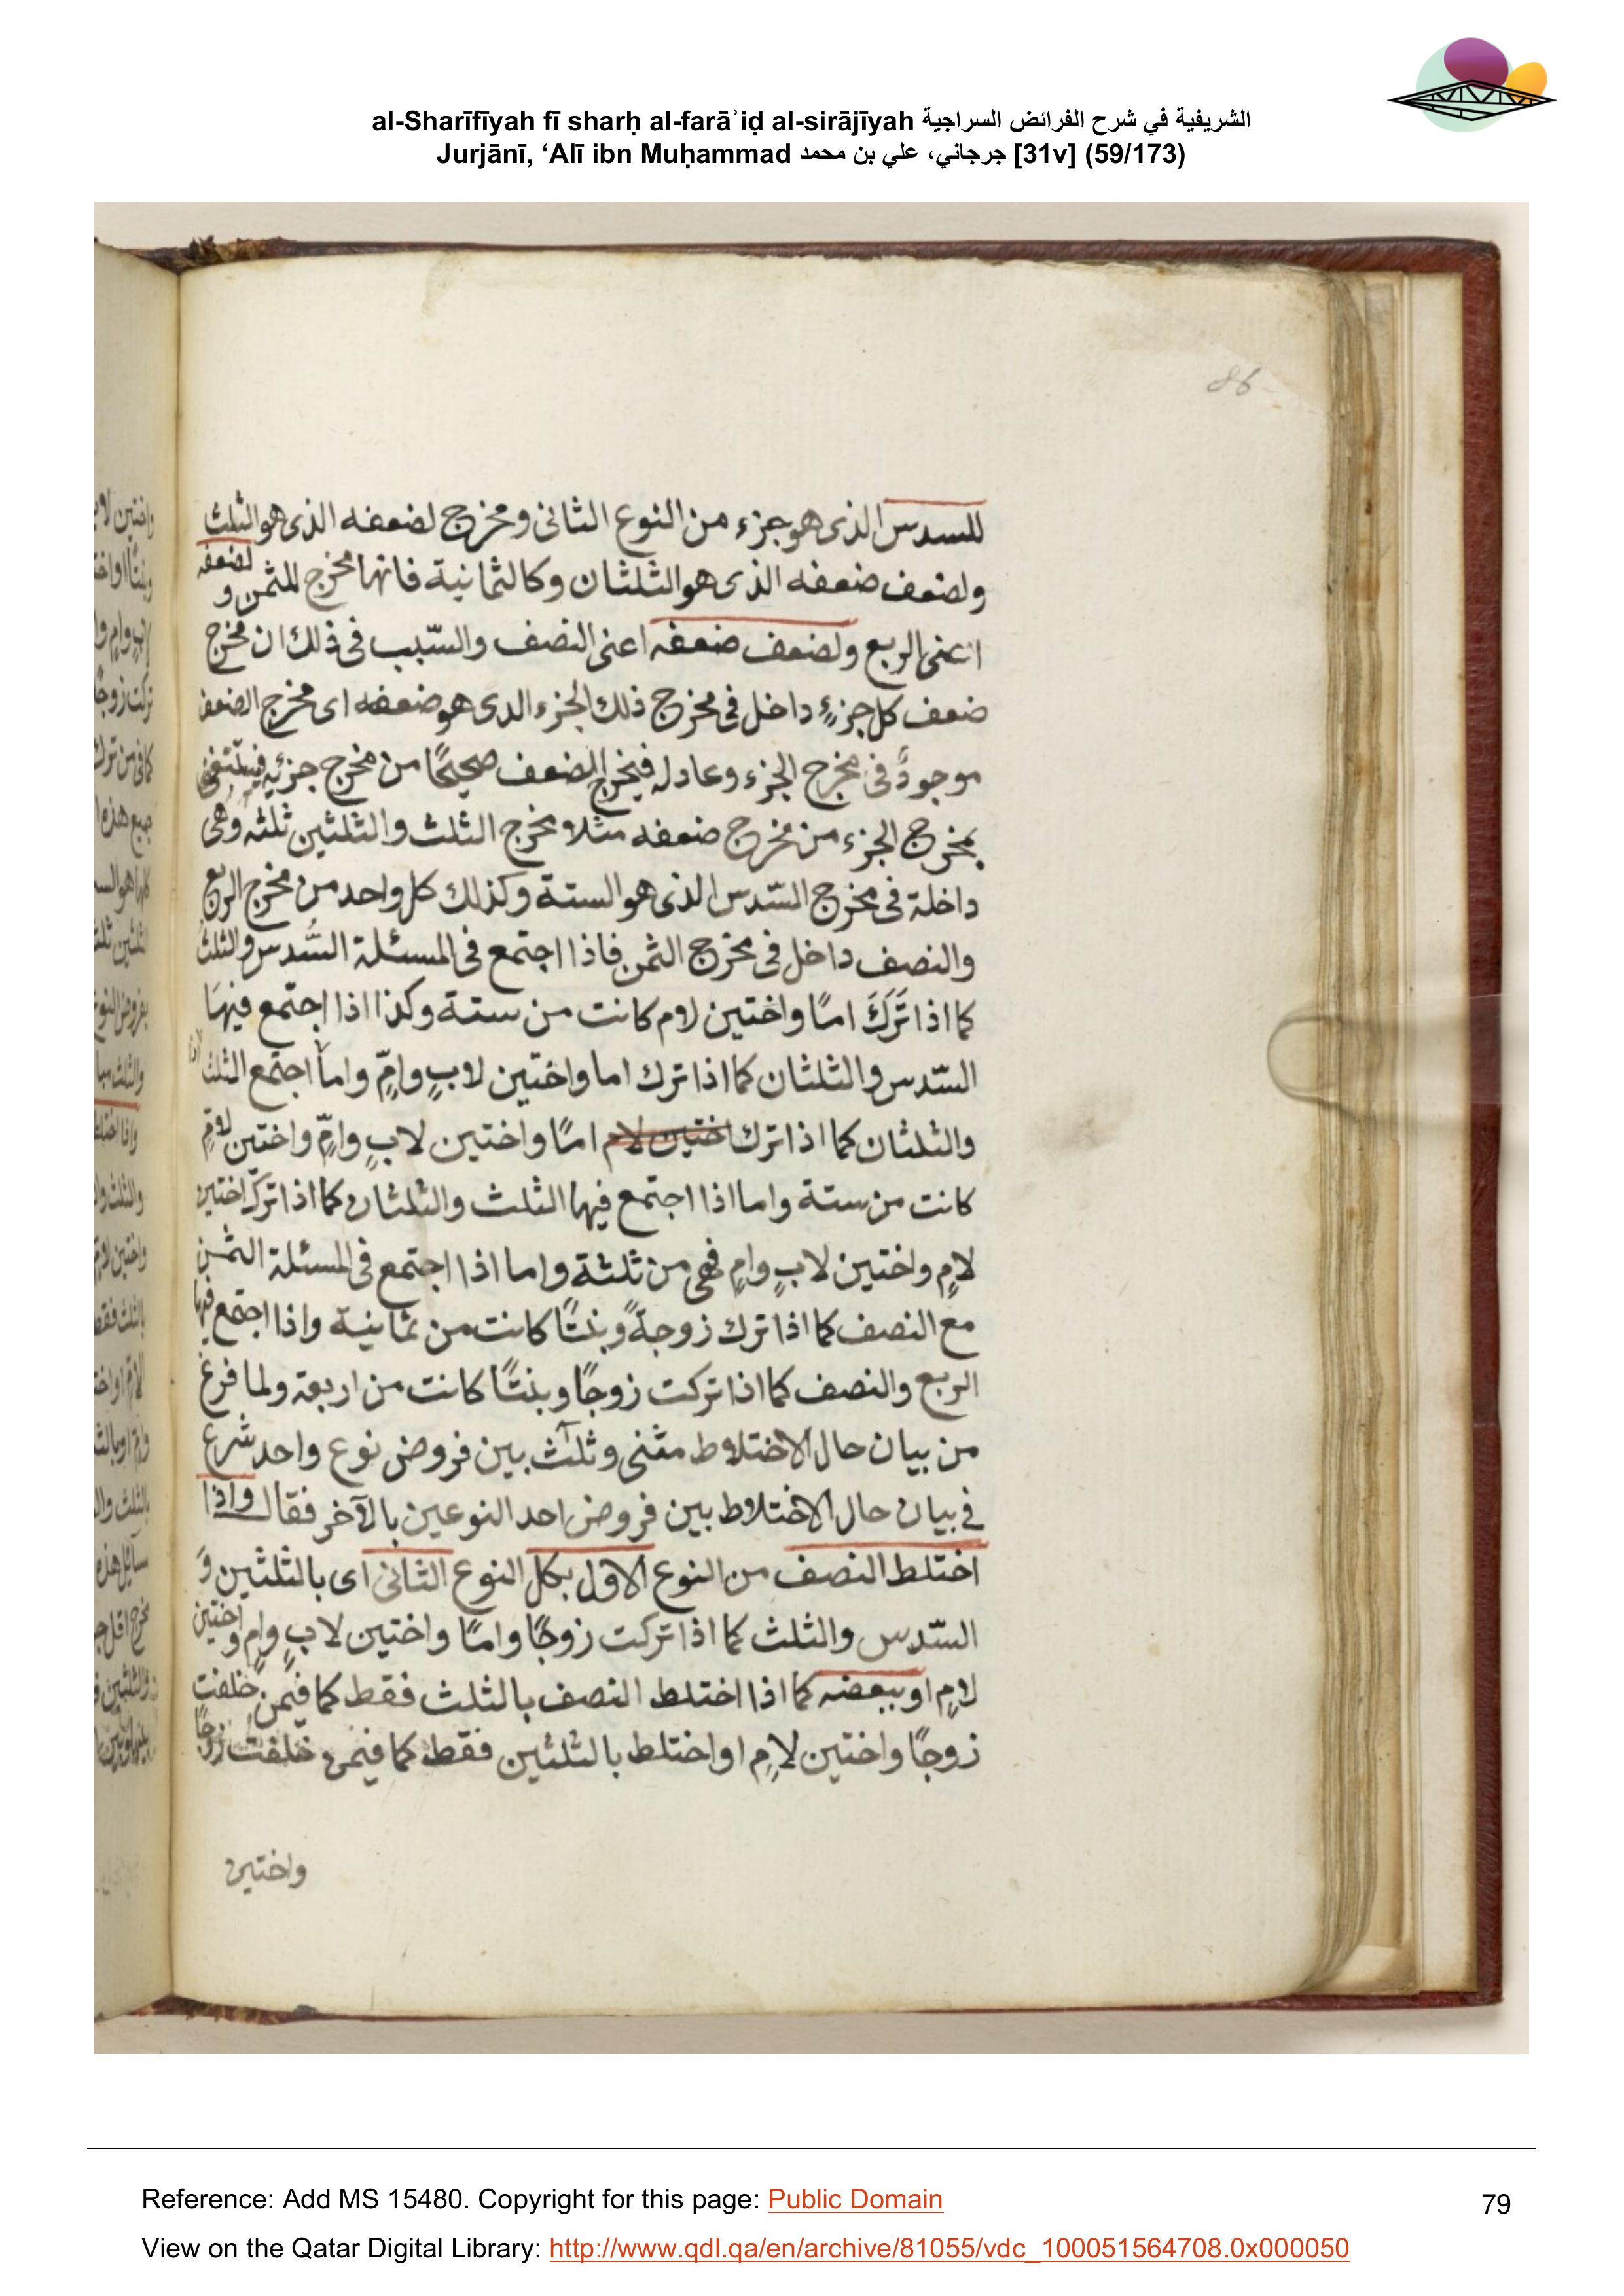 al-Sharīfīyah fī sharḥ al-farāʾiḍ al-sirājīyah الشريفية في شرح الفرائض السراجية
Jurjānī, ‘Alī ibn Muḥammad جرجاني، علي بن محمد [31v] (59/173)
86
للسدس الذى هو جزء من النوع الثانى ومخرج لضعفه الذى هو الثلث
ولضعف ضعفه الذى هو الثلثان وكالثمانية فانها مخرج للثمن و لضعفه
اعنى الربع ولضعف ضعفه اعنى النصف والسّبب فى ذلك ان مخرج
ضعف كل جزءٍ داخل فى مخرج ذلك الجزء الذى هو ضعفه اى مخرج الضعف
موجودٌ فى مخرج الجزء وعادله فيخرج الضعف صحيحًا من مخرج جزئه
بمخرج الجزء من مخرج ضعفه مثلا مخرج الثلث والثلثين ثلثه وهى
داخلة فى مخرج السّدس الذى هو الستة وكذلك كل واحد من مخرج الربع
والنصف داخل فى مخرج الثمن فاذا اجتمع فى المسئلة السُّدس والثلث
كما اذا تَرَكَ امًا واختين لام كانت من ستة وكذا اذا اجتمع فيها
السّدس والثلثان كما اذا ترك اما واختين لابٍ وامٍّ واما اجتمع الثلث
والثلثان كما اذا ترك اختين لام امًا واختين لابٍ وامٍّ واختين لامٍ
كانت من ستة واما اذا اجتمع فيها الثلث والثلثان كما اذا ترك اختين
لامٍ واختين لابٍ وامٍ فهى من ثلثة واما اذا اجتمع فى المسئلة الثمن
مع النصف كما اذا ترك زوجةً وبنتًا كانت من ثمانية واذا اجتمع فيها
الربع والنصف كما اذا تركت زوجًا وبنتًا كانت من اربعة ولما فرغ
من بيان حال الاختلاط مثنى وثلٰث بين فروض نوع واحد شرع
فى بيان حال الاختلاط بين فروض احد النوعين بالآخر فقال واذا
اختلط النصف من النوع الاول بكل النوع الثانى اى بالثلثين و
السّدس والثلث كما اذا تركت زوجًا وامًا واختين لابٍ وامٍ و اختين
لامٍ او ببعضه كما اذا اختلط النصف بالثلث فقط كما فيمن خلفت
زوجًا واختين لامٍ او اختلط بالثلثين فقط كما فيمن خلفت زوجًا
واختين
Reference: Add MS 15480. Copyright for this page: Public Domain
79
View on the Qatar Digital Library: http://www.qdl.qa/en/archive/81055/vdc_100051564708.0x000050